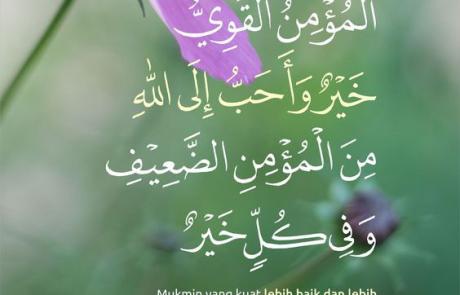 الْمُؤْمِنُ الْقَوِيُّ
خَيْرٌ وَأَحَبُّ إِلَى اللهِ
مِنَ الْمُؤْمِنِ الضَّعِيْفِ
وَفِي كُلٍّ خَيْرٌ
Mukmin yang kuat lebih baik dan lebih